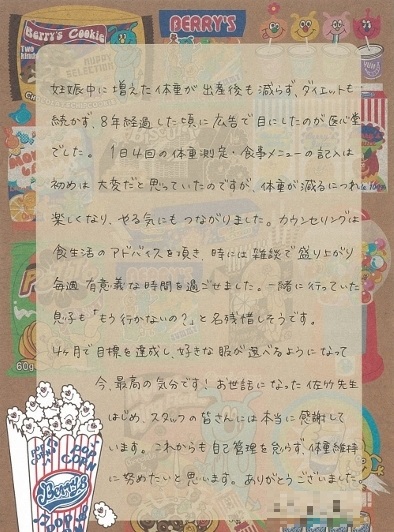 BERRY'S
Berry's Cookie
妊娠中に増えた体重が出産後も減らず、ダイエットも
続かず、8年経過した頃に広告で目にしたのが医心堂
でした。1日4回の体重測定・食事メニューの記入は
初めは大変だと思っていたのですが、体重が減るにつれ
楽しくなり、やる気にもつながりました。カウンセリングは
食生活のアドバイスを頂き、時には雑談で盛り上がり
毎週有意義な時間を過ごせました。一緒に行っていた
息子も「もう行かないの?」と名残惜しそうです。
4ヶ月で目標を達成し、好きな服が選べるようになって
今、最高の気分です!お世話になった佐竹先生
はじめ、スタッフの皆さんには本当に感謝して
います。これからも自己管理を怠らず、体重維持
に努めたいと思います。ありがとうございました。
60g
POP CORN
Berry's